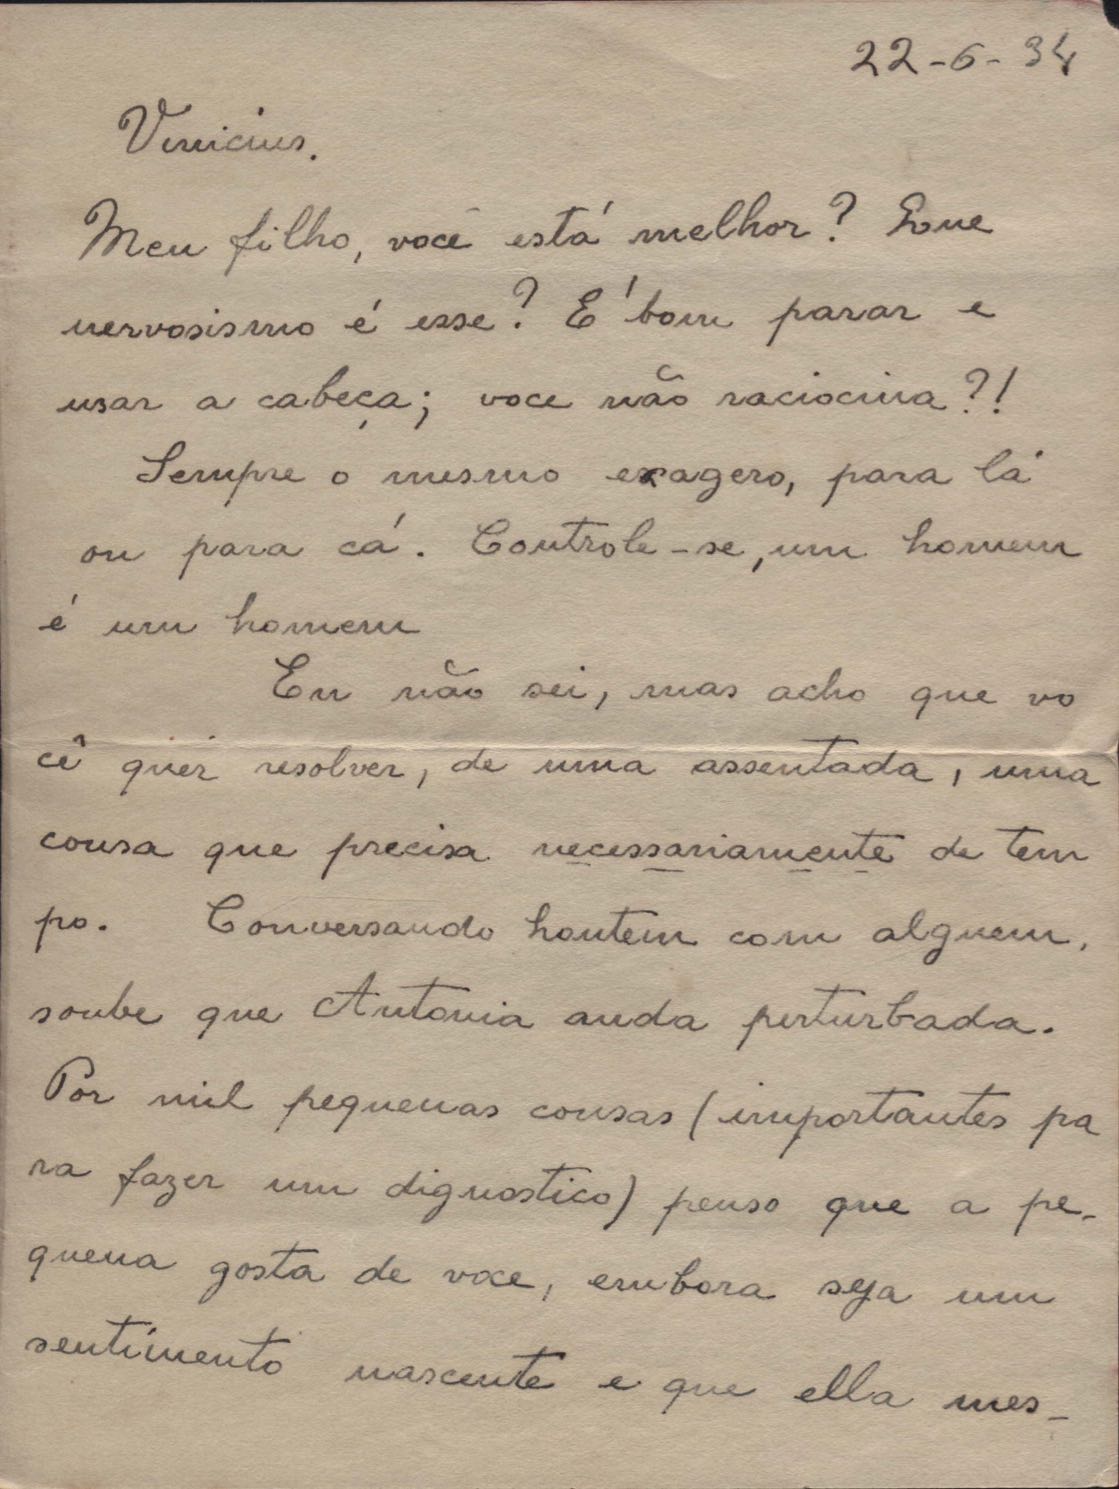 22-6-34
Vinicius.
Meu filho, você está melhor? Que
nervosismo é esse? É bom parar e
usar a cabeça; voce não raciocina?!
Sempre o mesmo exagero, para lá
ou para cá. Controle-se, um homem
é um homem
Eu não sei, mas acho que vo
cê quer resolver, de uma assentada, uma
cousa que precisa necessariamente de tem
po. Conversando hontem com alguem,
soube que Antonia anda perturbada.
Por mil pequenas cousas (importantes pa
ra fazer um dignostico) penso que a pe-
quena gosta de voce, embora seja um
sentimento nascente e que ella mes-